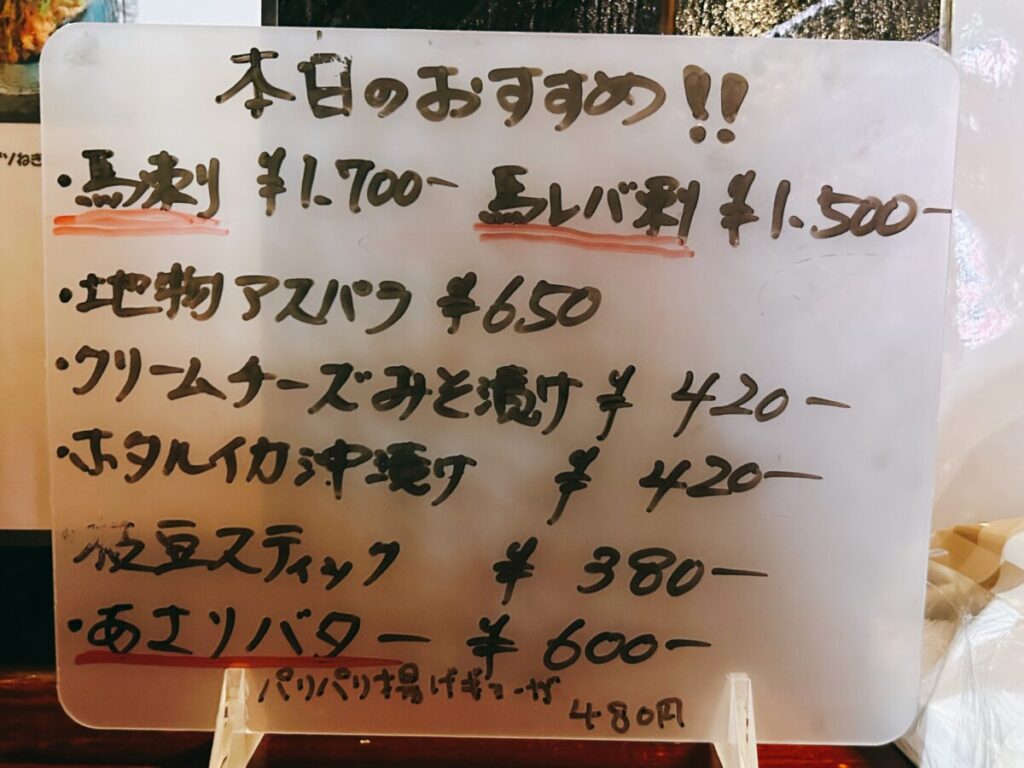 本日のおすすめ!!
ソねぎ
・馬刺 ¥1.700ー 馬レバ刺 ¥1.500ー
・地物アスパラ ¥650
・クリームチーズみそ漬け ¥420ー
・ホタルイカ沖漬け ¥420ー
枝豆スティック ¥380ー
・あさりバター ¥600ー
パリパリ揚げギョーザ
480円